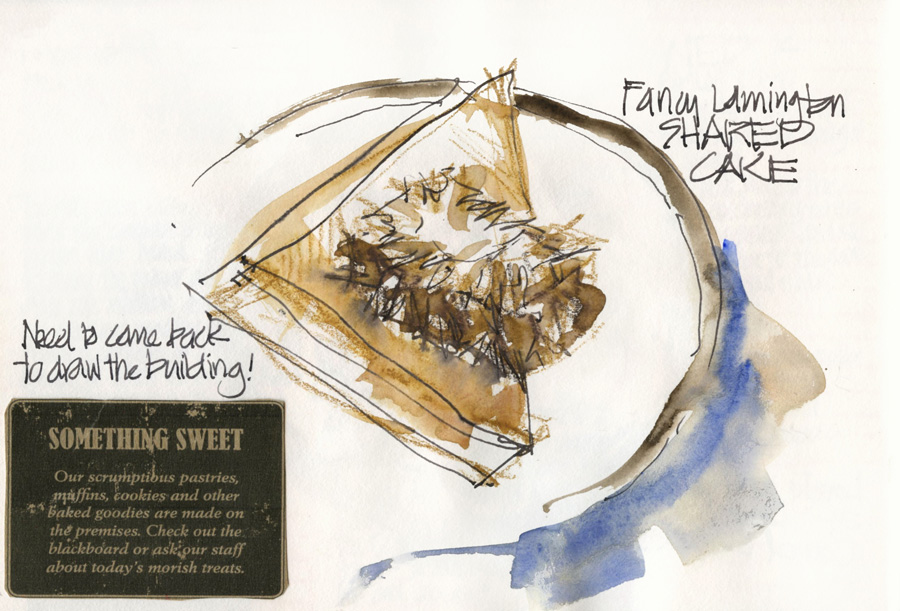 Fancy Lamington
SHARED
CAKE
Need to come back
to draw the building!
SOMETHING SWEET
Our scrumptious pastries,
muffins, cookies and other
baked goodies are made on
the premises. Check out the
blackboard or ask our staff
about today's morish treats.